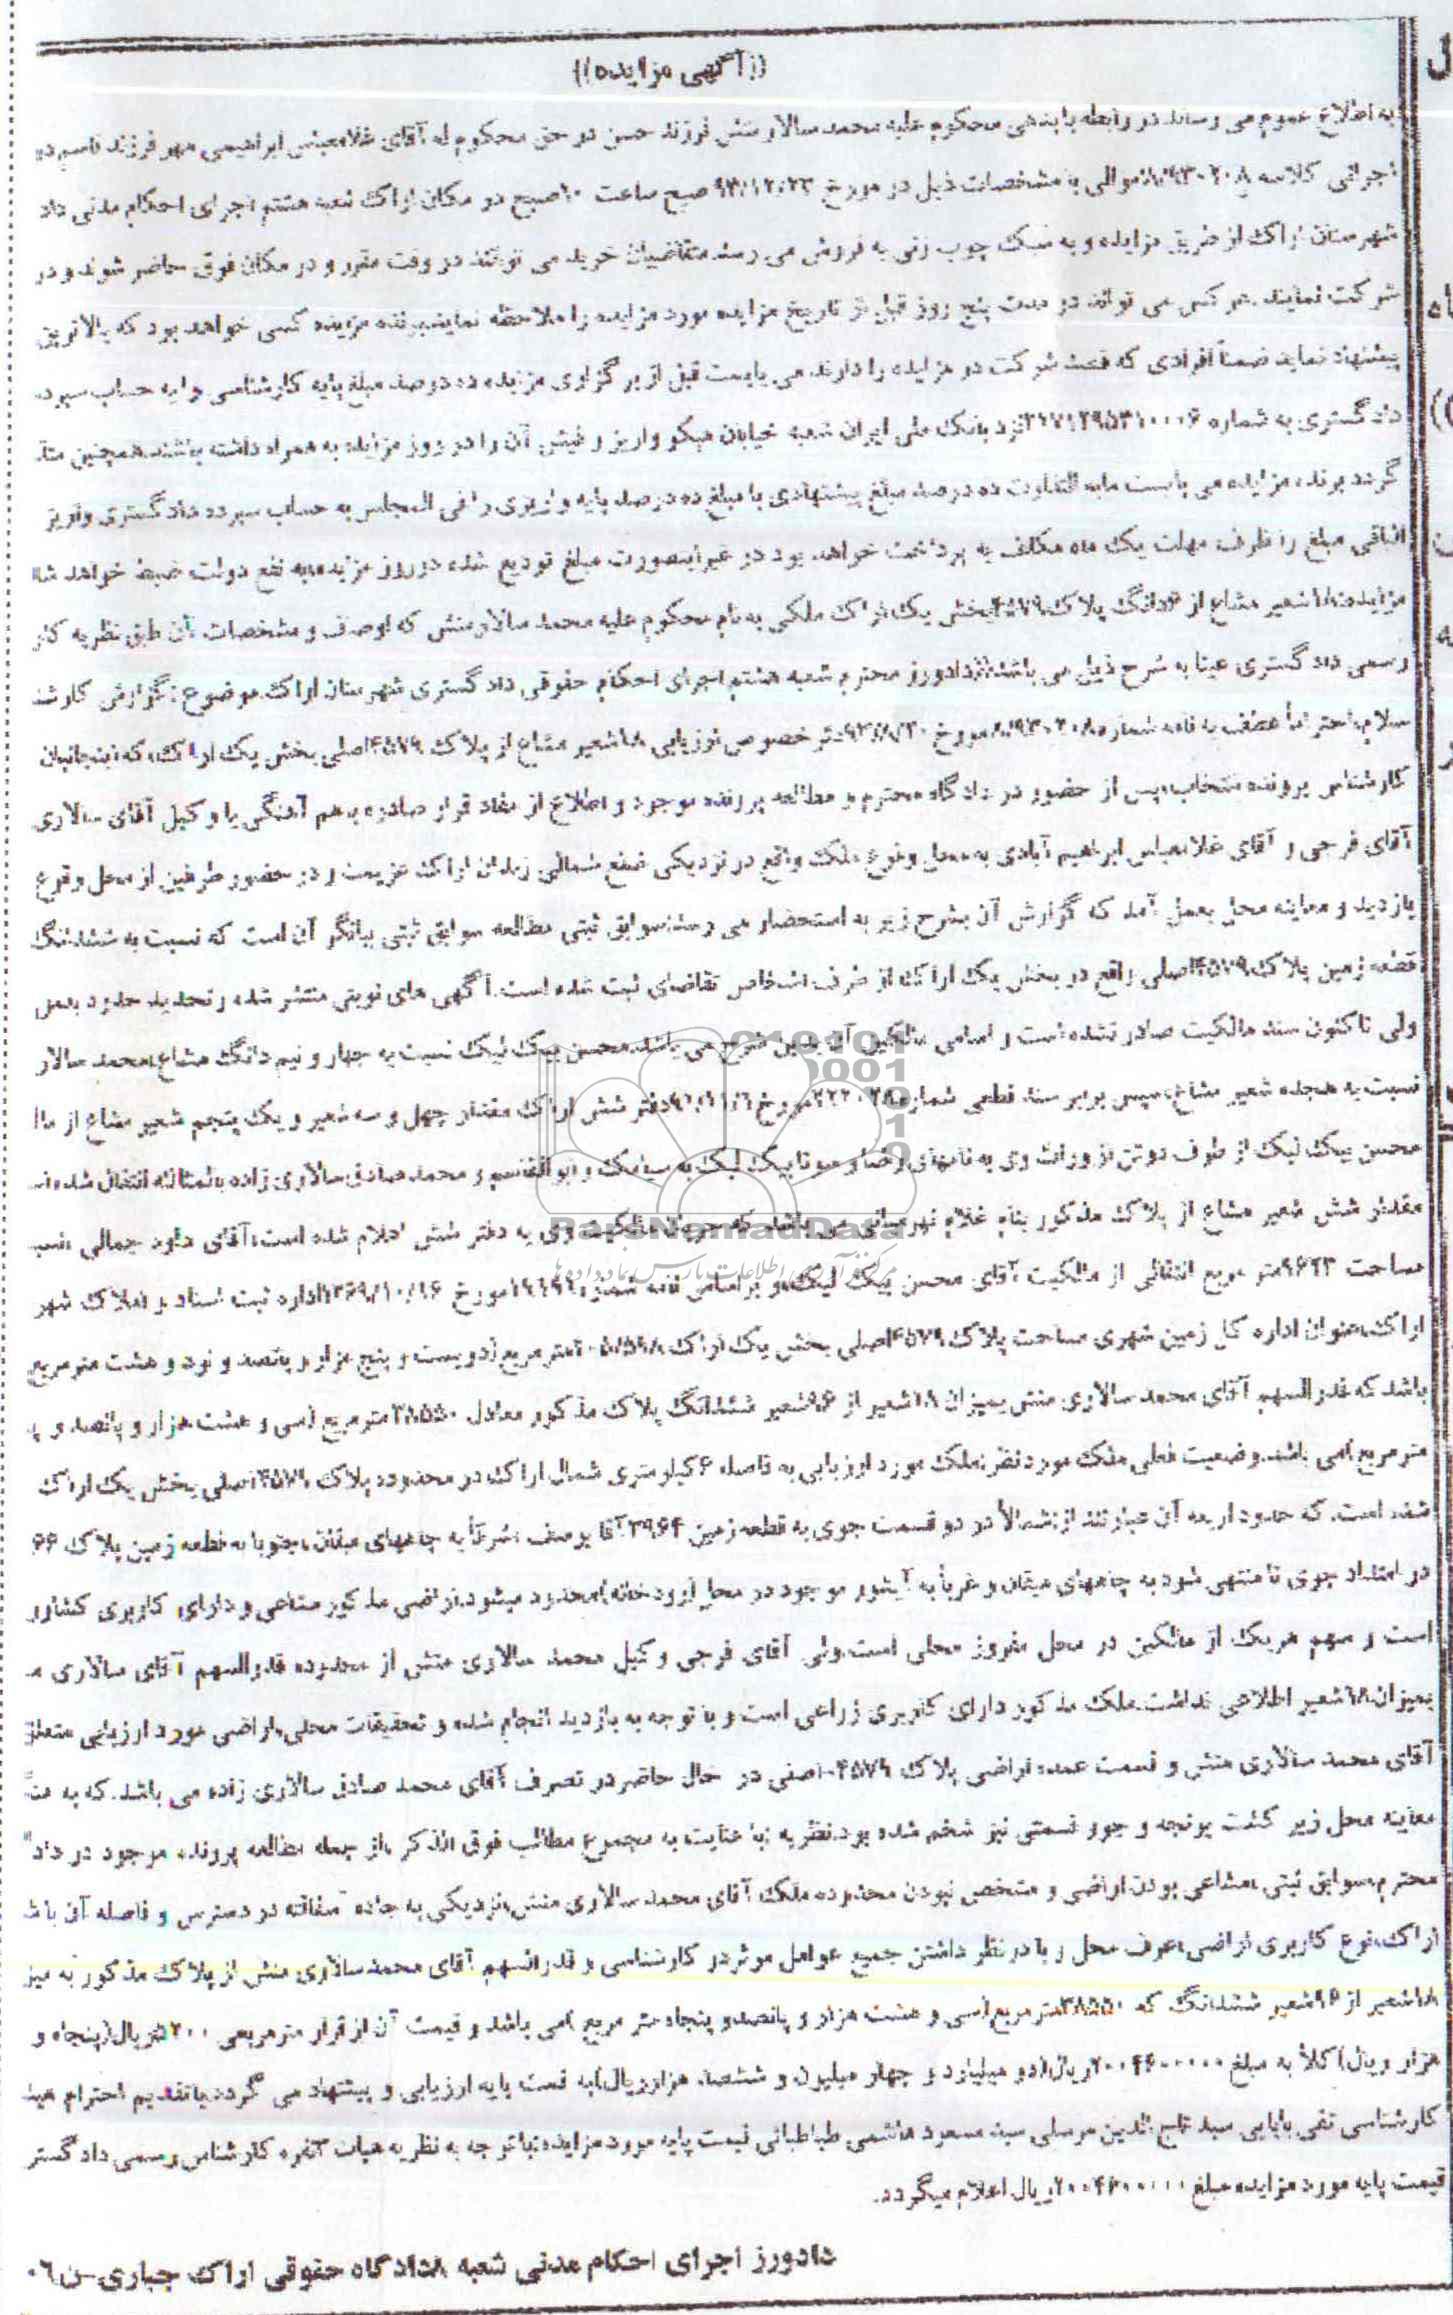 ((آگهی مزایده))
به اطلاع عموم می رساند در رابطه با بدهی محکوم علیه محمد سالار منش فرزند حسن در حق محکوم له آقای غلامعباس ابراهیمی مهر فرزند قاسم
اجرائی کلاسه اموالی با مشخصات ذیل در مورخ ۹۳/۱۲/۲۳ صبح ساعت ۱۰صبح در مکان اراک شعبه هشتم اجرای احکام مدنی
شهرستان اراک از طریق مزایده و به سبک چوب زنی به فروش می رسد متقاضیان خرید می توانند در وقت مقرر و در مکان فوق حاضر شوند و در
شرکت نمایند .هر کس می تواند در مدت پنج روز قبل از تاریخ مزایده مورد مزایده را ملاحظه نماید،برنده مزایده کسی خواهد بود که بالاترین
پیشنهاد نماید ضمناً افرادی که قصد شرکت در مزایده را دارند می بایست قبل از برگزاری مزایده ده درصد مبلغ پایه کارشناسی را به حساب سپرده
دادگستری به شماره نزد بانک ملی ایران شعبه خیابان هپکو واریز و فیش آن را در روز مزایده به همراه داشته باشند.همچنین
گردد برنده مزایده می بایست مابه التفاوت ده درصد مبلغ پیشنهادی با مبلغ ده درصد پایه واریزی را فی المجلس به حساب سپرده دادگستری واریز
الباقی مبلغ را ظرف مهلت یک ماه مکلف به پرداخت خواهد بود در غیراینصورت مبلغ تودیع شده در روز مزایده به نفع دولت ضبط خواهد
مزایده:۱۸شعیر مشاع از ۶دانگ پلاک۴۵۷۹بخش یک اراک ملکی به نام محکوم علیه محمد سالار منش که اوصاف و مشخصات آن طبق نظریه
رسمی دادگستری عینا به شرح ذیل می باشد:((دادورز محترم شعبه هشتم اجرای احکام حقوقی دادگستری شهرستان اراک.موضوع :گزارش
سلام،احتراماً عطف به نامه شماره مورخ در خصوص ارزیابی ۱۸شعیر مشاع از پلاک ۴۵۷۹اصلی بخش یک اراک، که اینجانبان
کارشناس پرونده منتخب،پس از حضور در دادگاه محترم و مطالعه پرونده موجود و اطلاع از مفاد قرار صادره با هم آهنگی با وکیل آقای سالاری
آقای فرجی و آقای غلامعباس ابراهیم آبادی به محل وقوع ملک واقع در نزدیکی ضلع شمالی زندان اراک عزیمت و در حضور طرفین از محل وقوع
بازدید و معاینه محل بعمل آمد که گزارش آن بشرح زیر به استحضار می رسد:سوابق ثبتی مطالعه سوابق ثبتی بیانگر آن است که نسبت به ششدانگ
قطعه زمین پلاک۴۵۷۹اصلی واقع در بخش یک اراک از طرف اشخاص تقاضای ثبت شده است.آگهی های نوبتی منتشر شده و تحدید حدود بعمل
ولی تا کنون سند مالکیت صادر نشده است و اسامی مالکین آن بدین شرح می باشد.محسن بیک لیک نسبت به چهار و نیم دانگ مشاع،محمد سالار
نسبت به هیجده شعیر مشاع،سپس برابر سند قطعی شماره مورخ دفتر شش اراک مقدار چهل و سه شعیر و یک پنجم شعیر مشاع از
محسن بیک لیک از طرف دو تن از وراث وی به نامهای رضا و مونا بیک لیک به سیامک و ابوالقاسم و محمد صادق سالاری زاده بالمثالثه انتقال شده
مقدار شش شعیر مشاع از پلاک مذکور بنام غلام قهرمانی می باشد که جریان مالکیت وی به دفتر شش اعلام شده است،آقای داود جمالی
مساحت ۹۶۲۳متر مربع انتقالی از مالکیت آقای محسن بیک لیک،و براساس نامه شماره مورخ ۱۳۶۹/۱۰/۱۶اداره ثبت اسناد و املاک شهر
اراک،عنوان اداره کل زمین شهری مساحت پلاک۴۵۷۹اصلی بخش یک اراک۲۰۵/۵۹۸متر مربع(دویست و پنج هزار و پانصد و نود و هشت متر مربع)
باشد که قدرالسهم آقای محمد سالاری منش بمیزان ۱۸شعیر از ۹۶شعیر ششدانگ پلاک مذکور معادل ۳۸۵۵۰متر مربع (سی و هشت هزار و پانصد و
متر مربع)می باشد.وضعیت فعلی ملک مورد نظر:ملک مورد ارزیابی به فاصله ۶کیلومتری شمال اراک در محدوده پلاک ۴۵۷۹اصلی بخش یک اراک
شده است، که حدود اربعه آن عبارتند از:شمالاً در دو قسمت جوی به قطعه زمین ۳۹۶۴آقا یوسف ،شرقاً به چاههای میقان ،جنوبا به قطعه زمین پلاک
در امتداد جوی تا منتهی شود به چاههای میقان و غرباً به آبشور موجود در محل(رودخانه)محدود میشود.اراضی مذکور مشاعی و دارای کاربری
است و سهم هریک از مالکین در محل مفروز محلی است.ولی آقای فرجی وکیل محمد سالاری منش از محدوده قدرالسهم آقای سالاری
بمیزان۱۸شعیر اطلاعی نداشت.ملک مذکور دارای کاربری زراعی است و با توجه به بازدید انجام شده و تحقیقات محلی،اراضی مورد ارزیابی متعلق
آقای محمد سالاری منش و قسمت عمده اراضی پلاک ۴۵۷۹اصلی در حال حاضر در تصرف آقای محمد صادق سالاری زاده می باشد.که به
معاینه محل زیر کشت یونجه و جو و قسمتی نیز شخم شده بود.نظریه :با عنایت به مجموع مطالب فوق الذکر ،از جمله مطالعه پرونده موجود در
محترم،سوابق ثبتی ،مشاعی بودن اراضی و مشخص نبودن محدوده ملک آقای محمد سالاری منش،نزدیکی به جاده آسفالته در دسترس و فاصله آن
اراک،نوع کاربری اراضی،عرف محل و با در نظر داشتن جمیع عوامل موثر در کارشناسی و قدرالسهم آقای محمد سالاری منش از پلاک مذکور به
۱۸شعیر از ۹۶شعیر ششدانگ که ۳۸۵۵۰متر مربع(سی و هشت هزار و پانصد و پنجاه متر مربع )می باشد و قیمت آن از قرار متر مربعی ریال(پنجاه و
هزار ریال)کلاً به مبلغ ۲۰۰۴۶۰۰۰۰۰ریال(دو میلیارد و چهار میلیون و ششصد هزار ریال)به قیمت پایه ارزیابی و پیشنهاد می گردد.با تقدیم احترام
کارشناسی تقی بابایی سید تاج الدین مرسلی سید مسعود هاشمی طباطبائی قیمت پایه مورد مزایده:با توجه به نظریه هیات ۳نفره کارشناس رسمی
قیمت پایه مورد مزایده مبلغ ۲۰۰۴۶۰۰۰۰۰ریال اعلام میگردد.
دادورز اجرای احکام مدنی شعبه ۸دادگاه حقوقی اراک جباری-
ParsNamadData